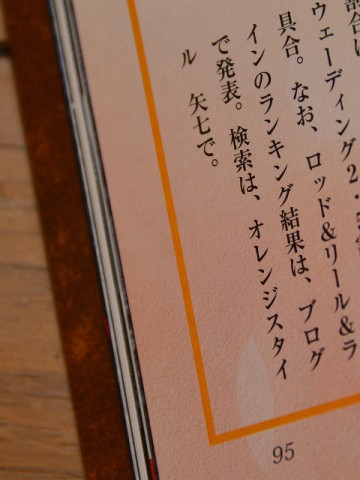 割合に
ウェーディング2・
具合。なお、ロッド&リール&ラ
インのランキング結果は、ブログ
で発表。検索は、オレンジスタイ
ル 矢七で。
95